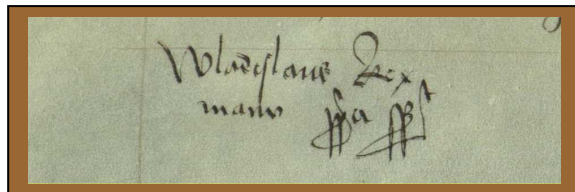 Wladislaus Rex
manu ppa sst